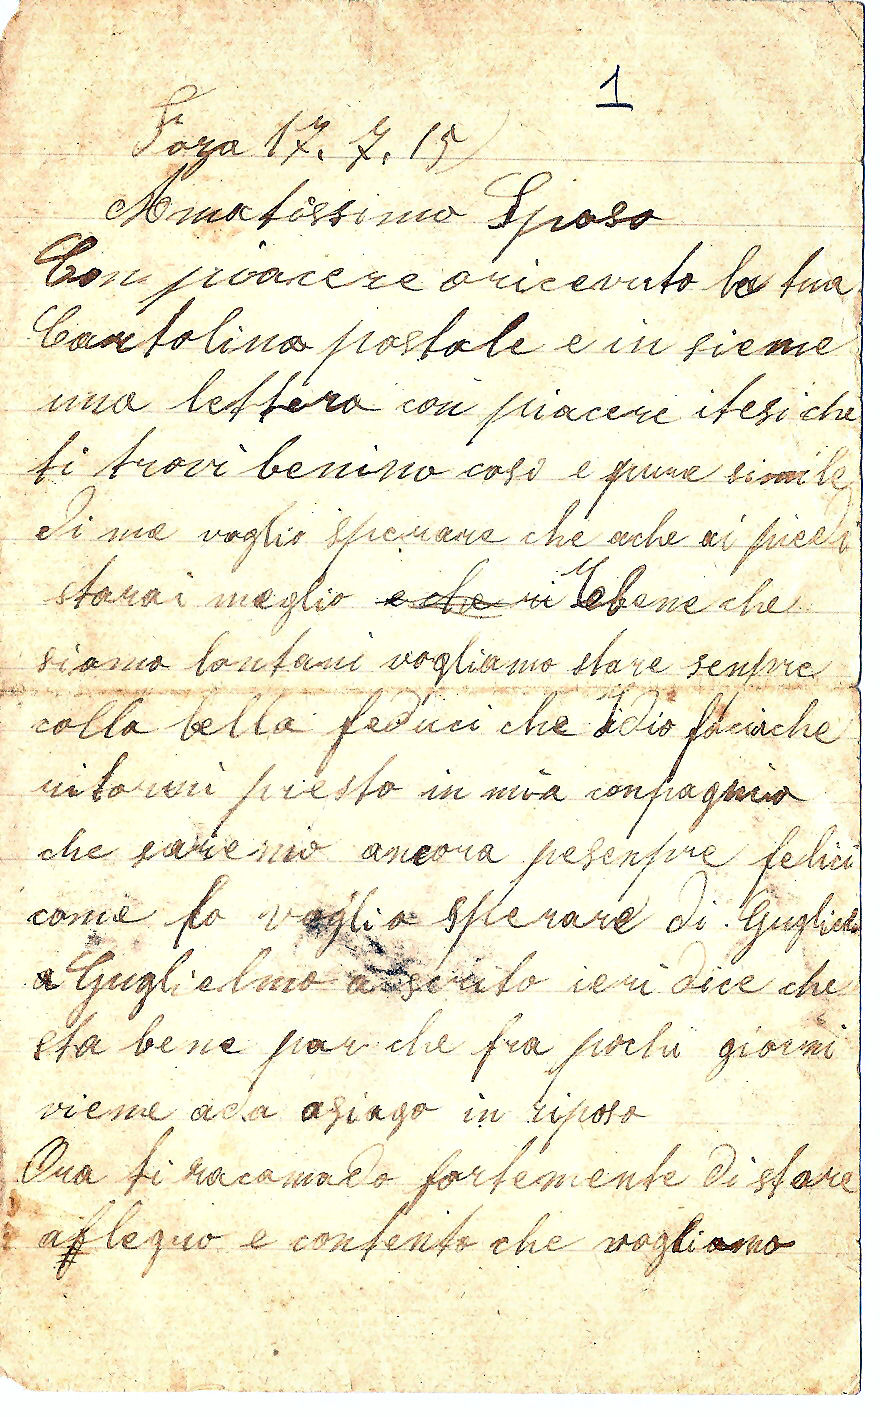 1
Fora 17. 7. 15
Amatissimo Sposo
Con piacere oricevuto la tua
Cartolina postale e in sieme
una lettera con piacere itesi che
ti trovi benino cosi e pure simile
di me voglio sperare che ache ai piedi
starai meglio e che ri Sebene che
siamo lontani vogliamo stare senpre
colla bella feduci che idio facia che
ritorni presto in mia conpagnia
che saremo ancora pesenpre felici
come lo voglio sperare di Guglielmo
a Guglielmo a scrito ieri dice che
sta bene par che fra pochi giorni
viene ada asiago in riposo
Ora ti racomado fortemente di stare
aflegro e contento che vogliamo